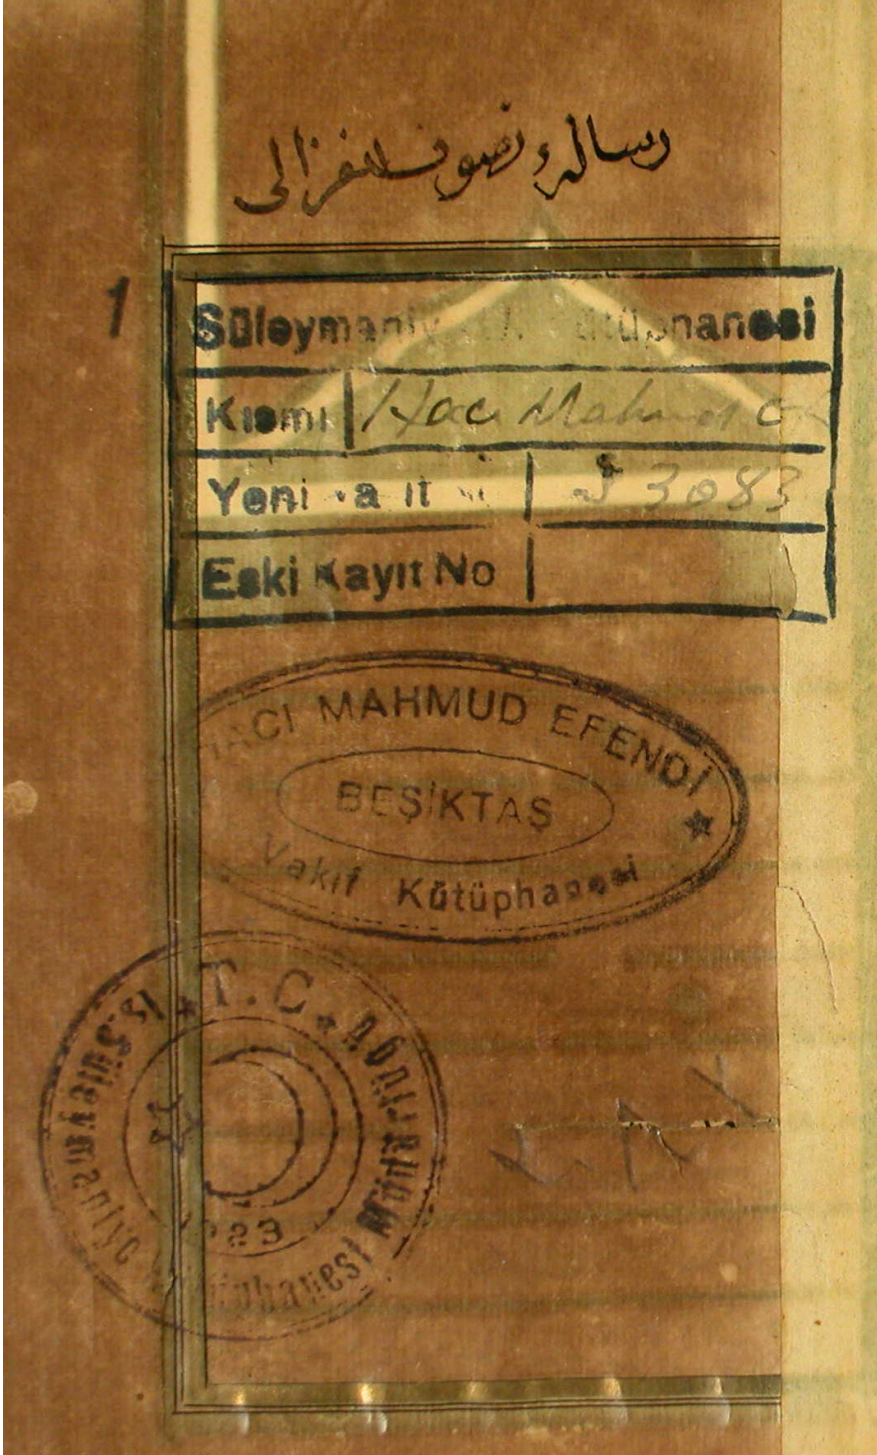 رسالهٔ تصوف لغزالى
1
Süleymaniy Kütüphanesi
Kısmı Hacı Mahmud Ef
Yeni Kayıt 3083
Eski Kayıt No
HACI MAHMUD EFENDİ
BEŞİKTAŞ
Vakıf Kütüphanesi
T. C.
İ. Süleymaniye Kütüphanesi Müdürlüğü
1923